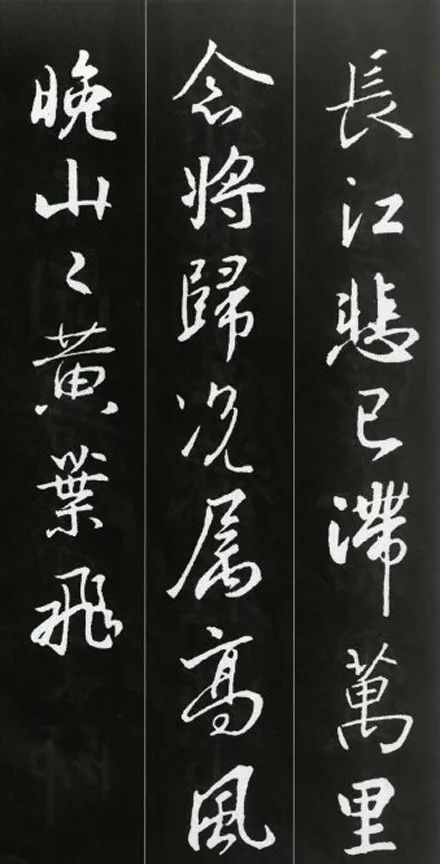 長江悲已滯萬里
念將歸况属髙風
晚山〻黄葉飛